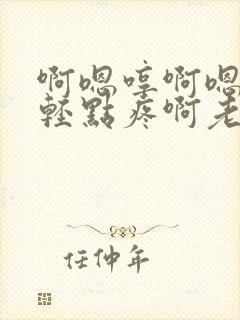 啊嗯哼啊嗯
輕點疼啊老
任仲年